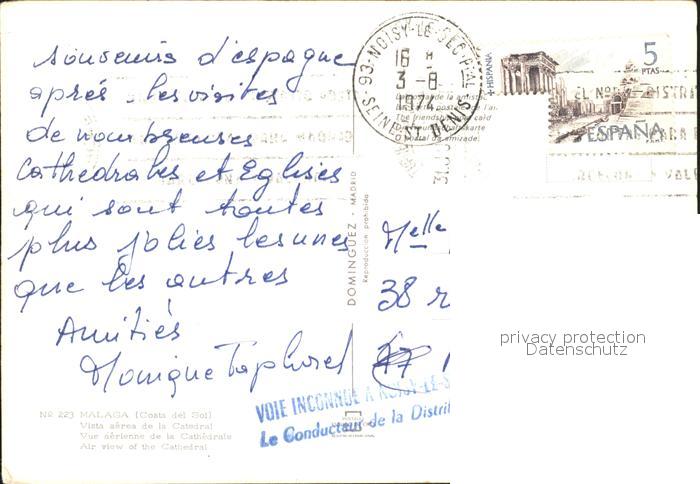 souvenirs d'espagne
après les visites
de nombreuses
Cathédrales et Eglises
qui sont toutes
plus jolies les unes
que les autres
Amitiés
Monique
Nº 223 MALAGA (Costa del Sol)
Vista aérea de la Catedral
Vue aérienne de la Cathédrale
Air view of the Cathedral
DOMINGUEZ - MADRID
Reproducción prohibida
93-NOISY-LE-SEC-PAL
16 H
3-8
1974
SEINE ST DENIS
HISPANIA
5
PTAS
ESPAÑA
The friendship card
Postal da amizade
Melle
38 r
VOIE INCONNUE A NOISY-LE-S
Le Conducteur de la Distrib
privacy protection
Datenschutz